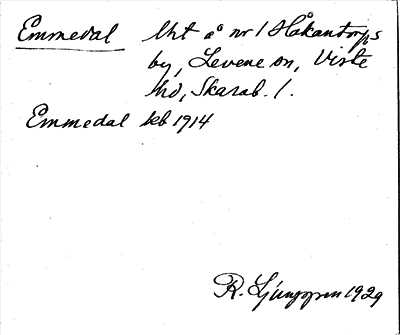 Emmedal lht å nr 1 Håkantorps
by, Levene sn, Viste
hd, Skarab. l.
Emmedal kb 1914
R. Ljunggren 1929